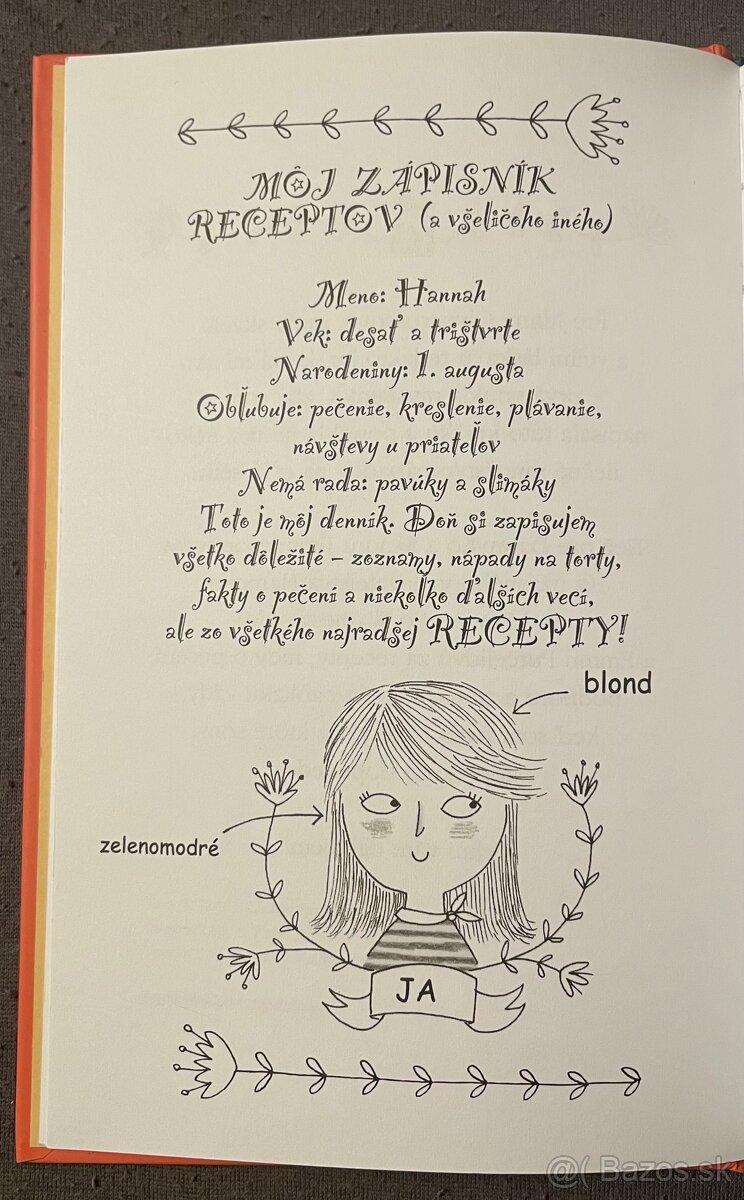 MÔJ ZÁPISNÍK
RECEPTOV (a všeličoho iného)
Meno: Hannah
Vek: desať a trištvrte
Narodeniny: 1. augusta
Obľubuje: pečenie, kreslenie, plávanie,
návštevy u priateľov
Nemá rada: pavúky a slimáky
Toto je môj denník. Doň si zapisujem
všetko dôležité – zoznamy, nápady na torty,
fakty o pečení a niekoľko ďalších vecí,
ale zo všetkého najradšej RECEPTY!
blond
zelenomodré
JA
@( Bazos.sk